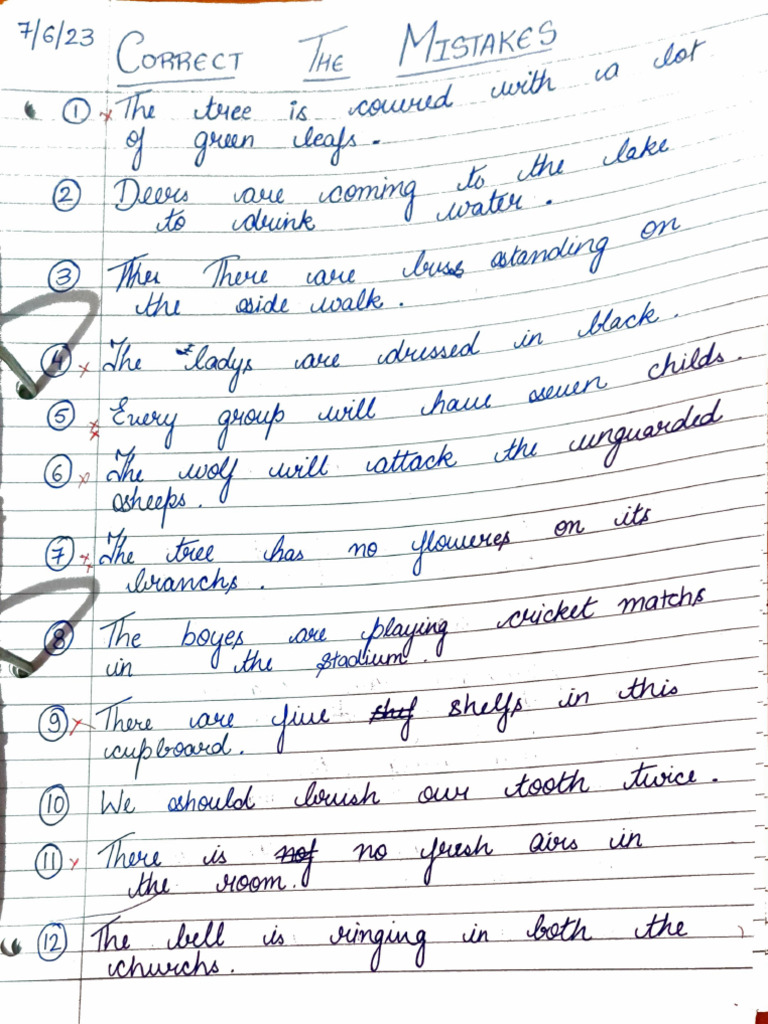 7/6/23 CORRECT THE MISTAKES
① The tree is covered with a lot
of green leafs.
② Deers are coming to the lake
to drink water.
③ There are buses standing on
the side walk.
④ The ladys are dressed in black.
⑤ Every group will have seven childs.
⑥ The wolf will attack the unguarded
sheeps.
⑦ The tree has no floweres on its
branchs.
⑧ The boyes are playing cricket matchs
in the stadium.
⑨ There are five shelfs in this
cupboard.
⑩ We should brush our tooth twice.
⑪ There is no fresh airs in
the room.
⑫ The bell is ringing in both the
churchs.